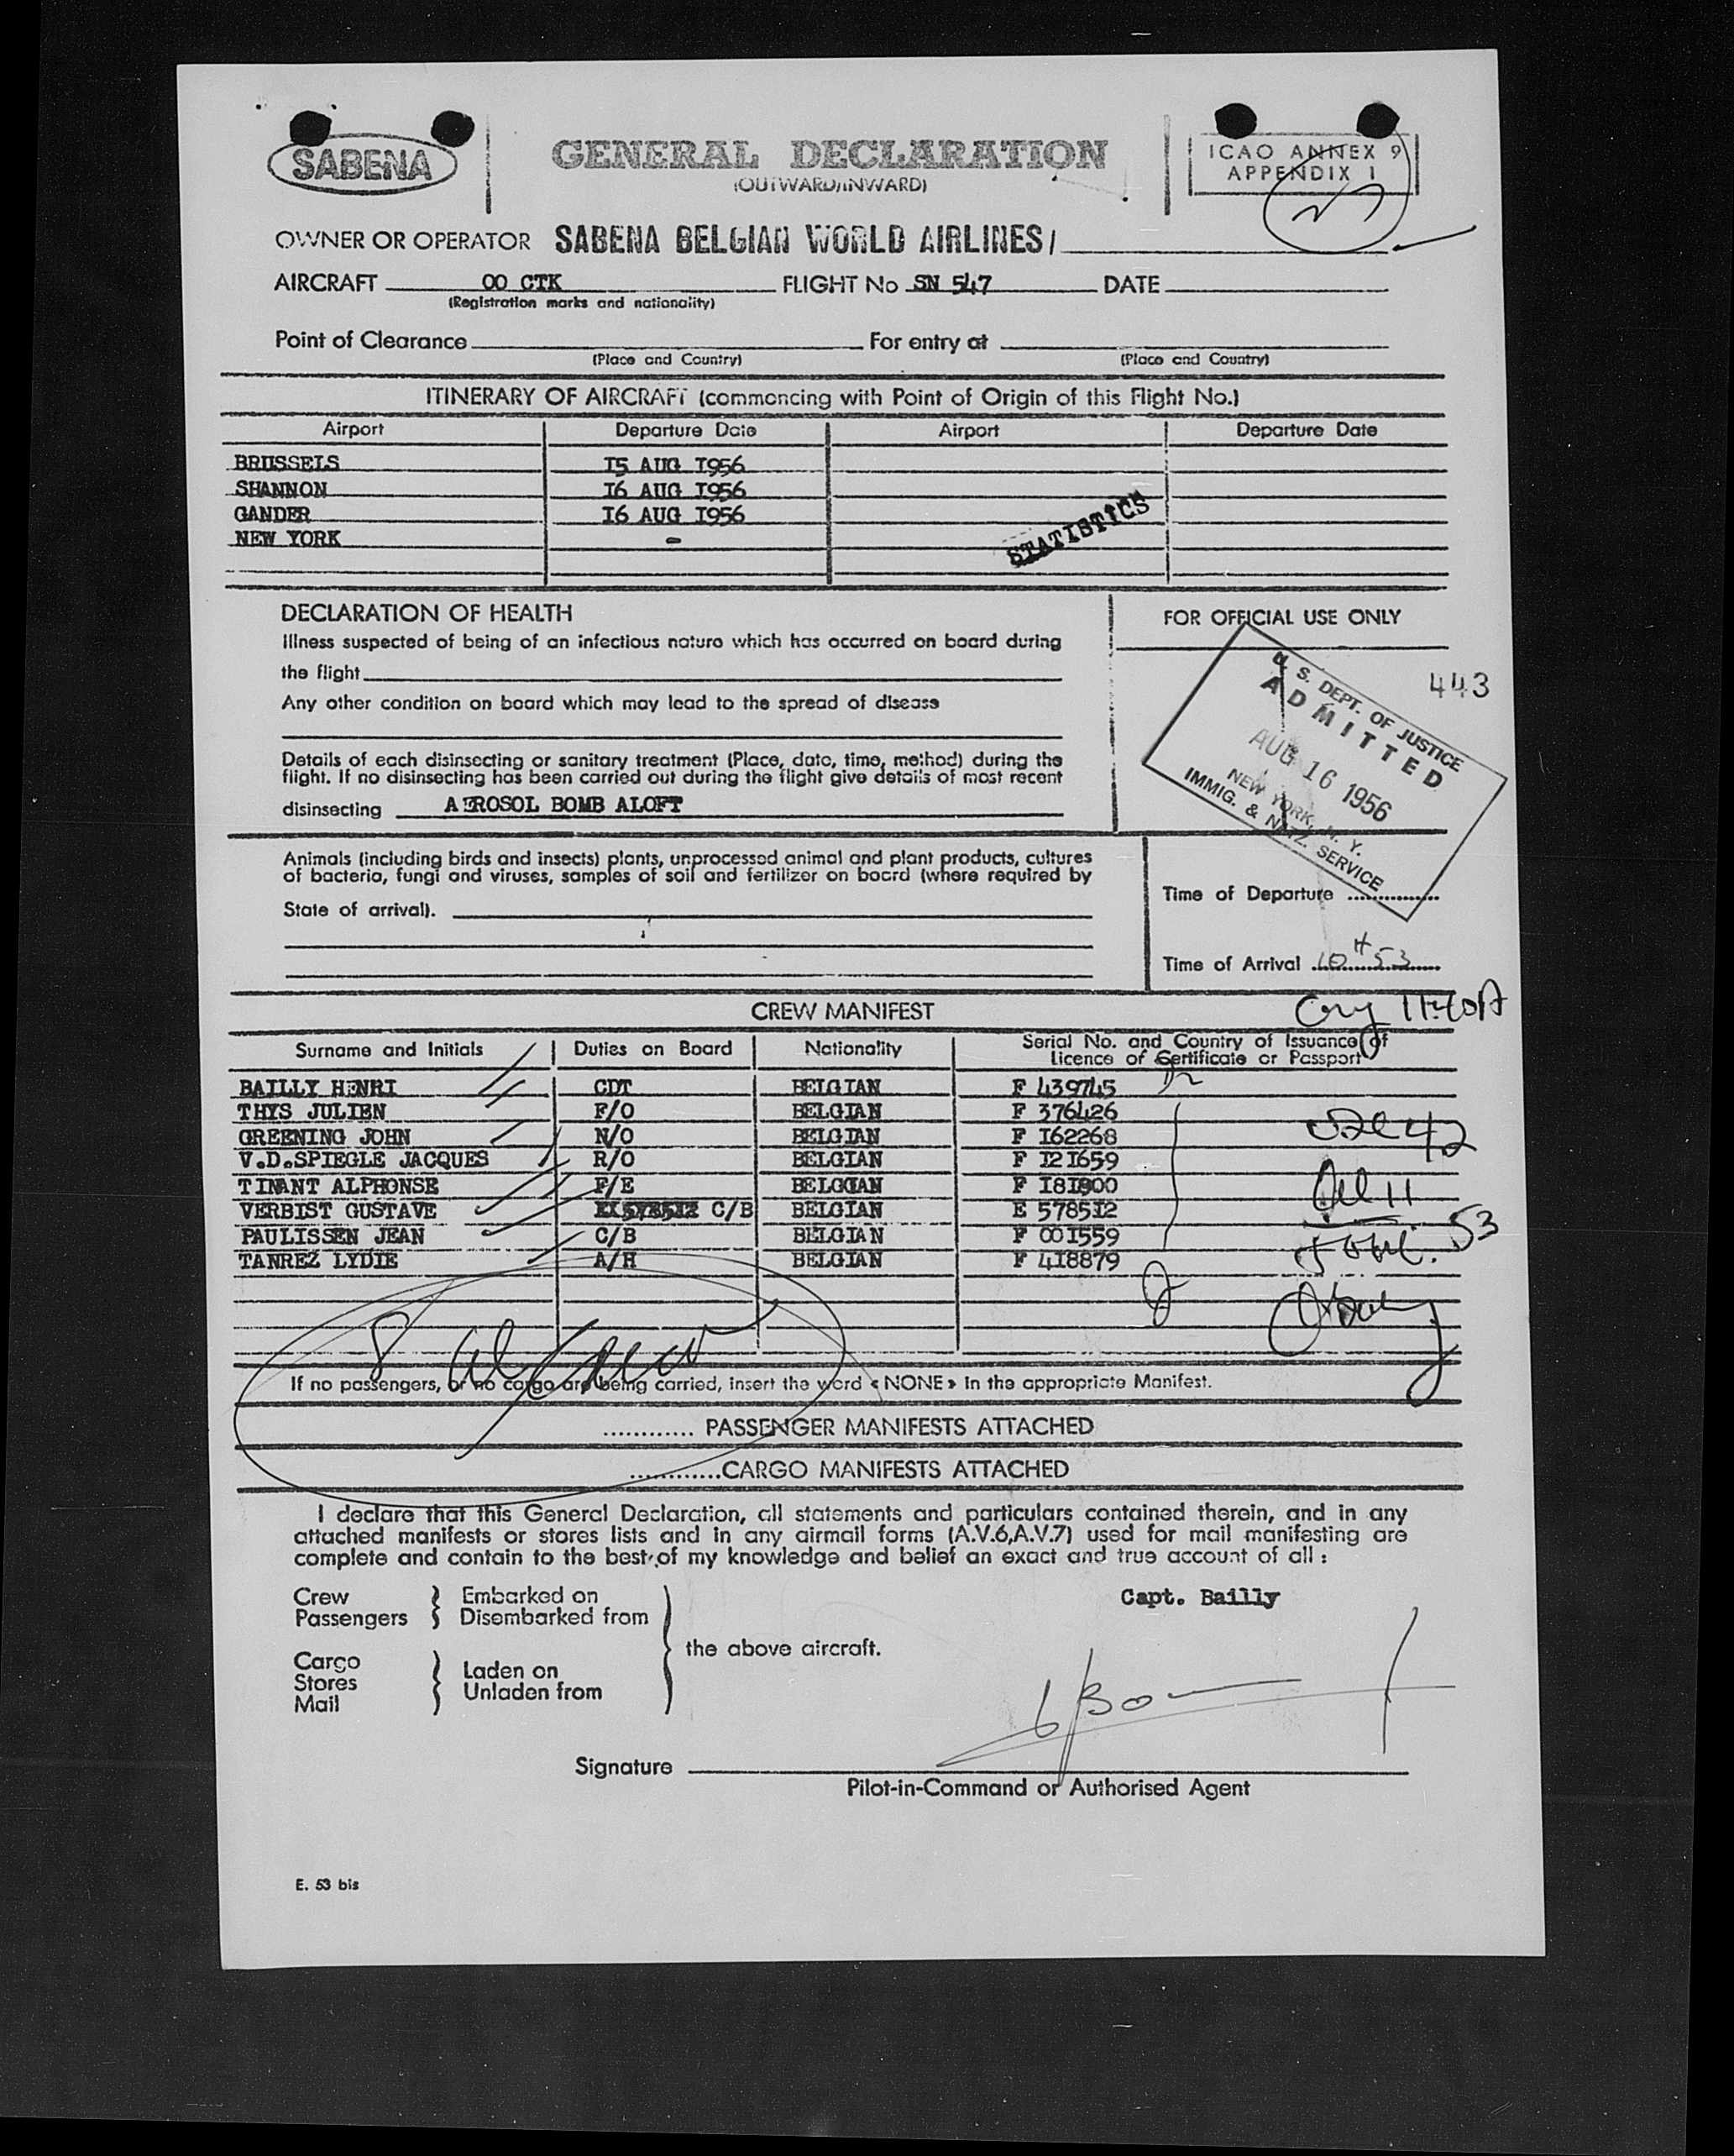 SABENA
GENERAL DECLARATION
(OUTWARD/INWARD)
ICAO ANNEX 9
APPENDIX 1
OWNER OR OPERATOR SABENA BELGIAN WORLD AIRLINES/
AIRCRAFT OO CTK FLIGHT No SN 547 DATE
(Registration marks and nationality)
Point of Clearance For entry at
(Place and Country) (Place and Country)
ITINERARY OF AIRCRAFT (commencing with Point of Origin of this Flight No.)
Airport Departure Date Airport Departure Date
BRUSSELS I5 AUG I956
SHANNON I6 AUG I956
GANDER I6 AUG I956
NEW YORK -
STATISTICS
DECLARATION OF HEALTH
Illness suspected of being of an infectious nature which has occurred on board during
the flight
Any other condition on board which may lead to the spread of disease
Details of each disinsecting or sanitary treatment (Place, date, time, method) during the
flight. If no disinsecting has been carried out during the flight give details of most recent
disinsecting AEROSOL BOMB ALOFT
FOR OFFICIAL USE ONLY
443
U. S. DEPT. OF JUSTICE
ADMITTED
AUG 16 1956
NEW YORK, N. Y.
IMMIG. & NATZ. SERVICE
Animals (including birds and insects) plants, unprocessed animal and plant products, cultures
of bacteria, fungi and viruses, samples of soil and fertilizer on board (where required by
State of arrival).
Time of Departure
Time of Arrival 10 H 53
CREW MANIFEST
Surname and Initials Duties on Board Nationality Serial No. and Country of Issuance of
Licence of Certificate or Passport
BAILLY HENRI CDT BELGIAN F 439745
THYS JULIEN F/O BELGIAN F 376426
GREENING JOHN N/O BELGIAN F I62268
V.D.SPIEGLE JACQUES R/O BELGIAN F I2I659
TINANT ALPHONSE F/E BELGGIAN F I8I800
VERBIST GUSTAVE C/B BELGIAN E 5785I2
PAULISSEN JEAN C/B BELGIAN F 00I559
TANREZ LYDIE A/H BELGIAN F 4I8879
42
11
53
8
If no passengers, or no cargo are being carried, insert the word « NONE » in the appropriate Manifest.
............ PASSENGER MANIFESTS ATTACHED
............CARGO MANIFESTS ATTACHED
I declare that this General Declaration, all statements and particulars contained therein, and in any
attached manifests or stores lists and in any airmail forms (A.V.6,A.V.7) used for mail manifesting are
complete and contain to the best of my knowledge and belief an exact and true account of all :
Crew Embarked on
Passengers Disembarked from
the above aircraft.
Cargo
Stores Laden on
Mail Unladen from
Capt. Bailly
Signature
Pilot-in-Command or Authorised Agent
E. 53 bis